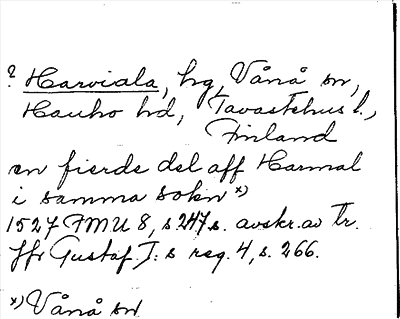 ? Harviala, hg, Vånå sn,
Hauho hd, Tavastehus l.,
Finland
en fierde del aff Harmal
i samma sokn x)
1527 FMU 8, s 247 s. avskr. av Tr.
Jfr Gustaf I:s reg. 4, s. 266.
x) Vånå sn